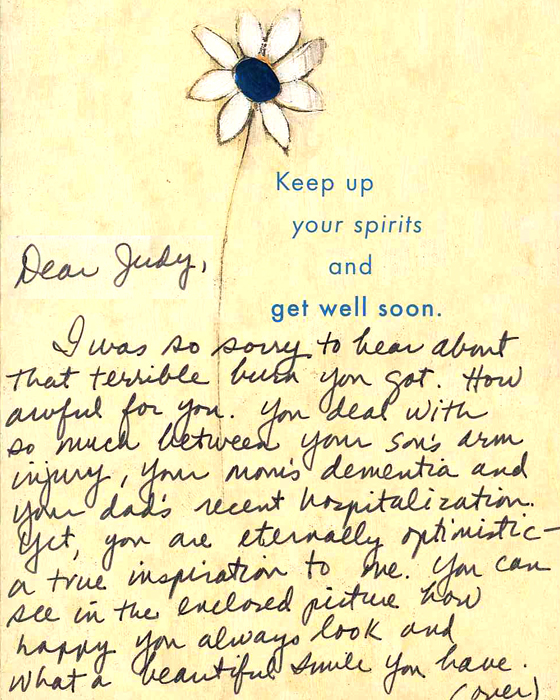 Keep up
your spirits
and
get well soon.
Dear Judy,
I was so sorry to hear about
that terrible burn you got. How
awful for you. You deal with
so much between your son's arm
injury, your mom's dementia and
your dad's recent hospitalization.
Yet, you are eternally optimistic–
a true inspiration to me. You can
see in the enclosed picture how
happy you always look and
what a beautiful smile you have.
(over)